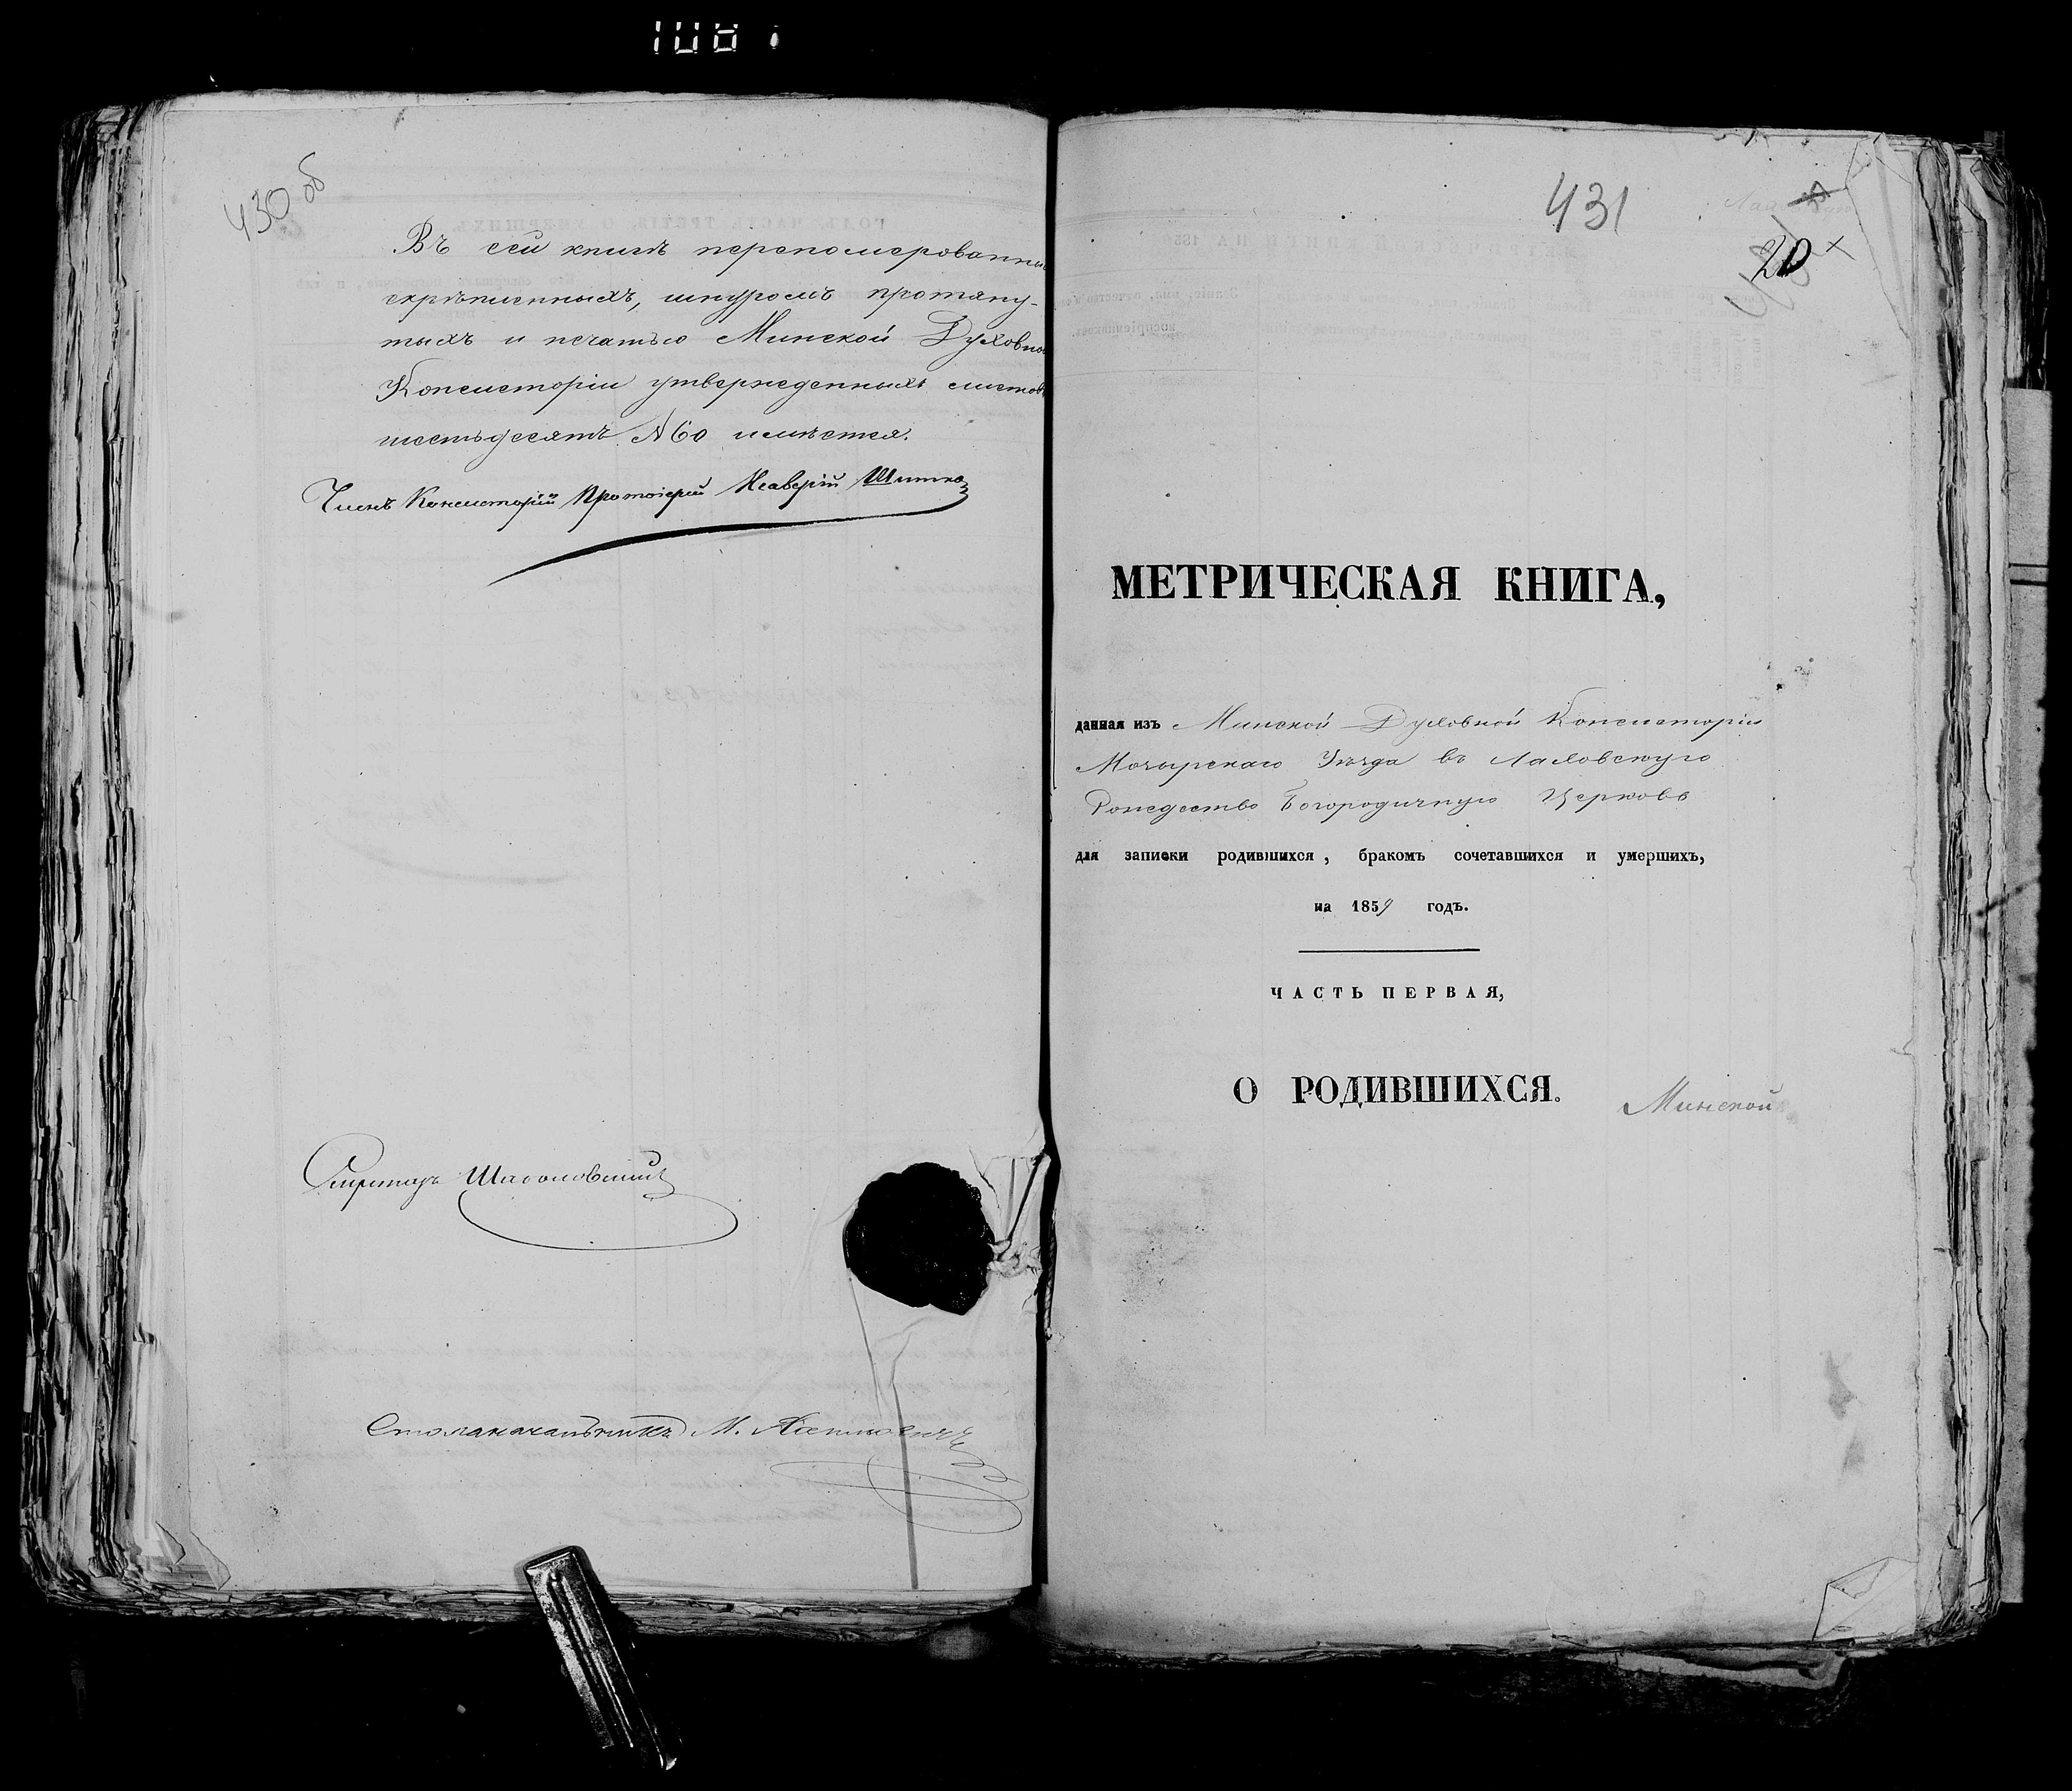 430 об
Въ сей книгѣ перепомерованны
скрѣпленныхъ, шнуромъ протяну-
тыхъ и печатью Минской Духовной
Консисторіи утвержденныхъ листовъ
шестьдесятъ №60 имѣется.
Членъ Консисторіи Протоіерей Ксаверій
Секретарь
Столоначальникъ М.
431
20
МЕТРИЧЕСКАЯ КНИГА,
данная изъ Минской Духовной Консисторіи
Мозырскаго Уѣзда въ Лаховскую
Рождество Богородичную Церковь
для записки родившихся, бракомъ сочетавшихся и умершихъ,
на 1859 годъ.
ЧАСТЬ ПЕРВАЯ,
О РОДИВШИХСЯ.
Минской